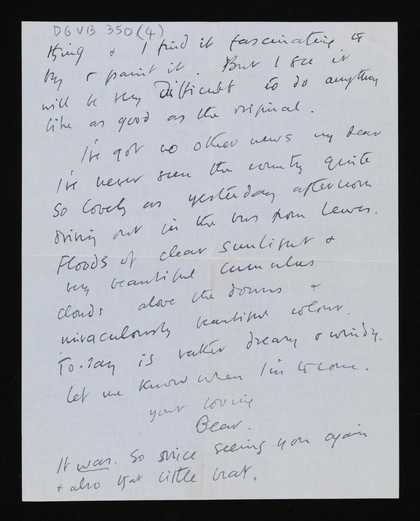 DGVB 350 (4)
thing & I find it fascinating to
try & paint it. But I see it
will be very difficult to do anything
like as good as the original.
I've got no other news my dear
I've never seen the country quite
so lovely as yesterday afternoon
driving out in the bus from Lewes.
Floods of clear sunlight &
very beautiful cumulus
clouds above the downs &
miraculously beautiful colour.
To-day is rather dreary & windy.
Let me know when I'm to come.
your loving
Bear.
It was so nice seeing you again
& also that little brat.